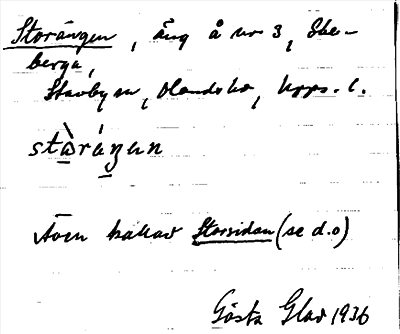 Storängen, äng å nr 3, Ske-
berga,
Stavby sn, Olands hd, Upps. l.
Även kallad Storsidan (se d.o)
Gösta Glad 1936